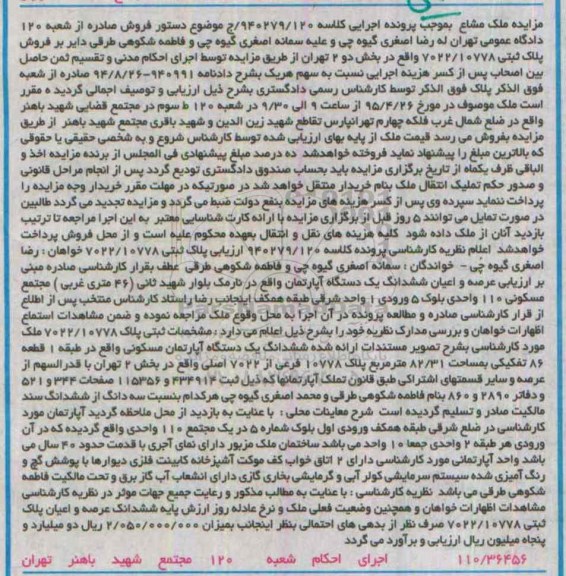 مزایده ملک مشاع بموجب پرونده اجرایی کلاسه ۹۴۰۲۷۹/۱۲۰/ج موضوع دستور فروش صادره از شعبه ۱۲۰
دادگاه عمومی تهران له رضا اصغری گیوه چی و علیه سمانه اصغری گیوه چی و فاطمه شکوهی طرقی دایر بر فروش
پلاک ثبتی ۷۰۲۲/۱۰۷۷۸ واقع در بخش دو ۲ تهران از طریق مزایده توسط اجرای احکام مدنی و تقسیم ثمن حاصل
بین اصحاب پس از کسر هزینه اجرایی نسبت به سهم هریک بشرح دادنامه ۹۴۰۹۹۱-۹۴/۸/۲۶ صادره از شعبه
فوق الذکر پلاک فوق الذکر توسط کارشناس رسمی دادگستری بشرح ذیل ارزیابی و توصیف اجمالی گردیده مقرر
است ملک موصوف در مورخ ۹۵/۴/۲۶ از ساعت ۹ الی ۹/۳۰ در شعبه ۱۲۰ ط سوم در مجتمع قضایی شهید باهنر
واقع در ضلع شمال غرب فلکه چهارم تهرانپارس تقاطع شهید زین الدین و شهید باقری مجتمع شهید باهنر از طریق
مزایده بفروش می رسد قیمت ملک از پایه بهای ارزیابی شده توسط کارشناس شروع و به شخصی حقیقی یا حقوقی
که بالاترین مبلغ را پیشنهاد نماید فروخته خواهدشد ده درصد مبلغ پیشنهادی فی المجلس از برنده مزایده اخذ و
الباقی ظرف یکماه از تاریخ برگزاری مزایده باید بحساب صندوق دادگستری تودیع گردد پس از انجام مراحل قانونی
و صدور حکم تملیک انتقال ملک بنام خریدار منتقل خواهد شد در صورتیکه در مهلت مقرر خریدار وجه مزایده را
پرداخت ننماید سپرده وی پس از کسر هزینه های مزایده بنفع دولت ضبط می گردد و مزایده تجدید می گردد طالبین
در صورت تمایل می توانند ۵ روز قبل از برگزاری مزایده با ارائه کارت شناسایی معتبر به این اجرا مراجعه تا ترتیب
بازدید آنان از ملک داده شود کلیه هزینه های نقل و انتقال بعهده محکوم علیه است و از محل فروش پرداخت
خواهدشد اعلام نظریه کارشناسی پرونده کلاسه ۹۴۰۲۷۹/۱۲۰ ارزیابی پلاک ثبتی ۷۰۲۲/۱۰۷۷۸ خواهان : رضا
اصغری گیوه چی - خواندگان : سمانه اصغری گیوه چی و فاطمه شکوهی طرقی عطف بقرار کارشناسی صادره مبنی
بر ارزیابی عرصه و اعیان ششدانگ یک دستگاه آپارتمان واقع در نارمک بلوار شهید ثانی (۴۶ متری غربی ) مجتمع
مسکونی ۱۱۰ واحدی بلوک ۵ ورودی ۱ واحد شرقی طبقه همکف اینجانب رضا راستاد کارشناس منتخب پس از اطلاع
از قرار کارشناسی صادره و مطالعه پرونده در آن اجرا به محل وقوع ملک مراجعه نموده و ضمن مشاهدات استماع
اظهارات خواهان و بررسی مدارک نظریه خود را بشرح ذیل اعلام می دارد : مشخصات ثبتی پلاک ۷۰۲۲/۱۰۷۷۸ ملک
مورد کارشناسی بشرح تصویر مستندات ارائه شده ششدانگ یک دستگاه آپارتمان مسکونی واقع در طبقه ۱ قطعه
۸۶ تفکیکی بمساحت ۸۲/۳۱ مترمربع پلاک ۱۰۷۷۸ فرعی از ۷۰۲۲ اصلی واقع در بخش ۲ تهران با قدرالسهم از
عرصه و سایر قسمتهای اشتراکی طبق قانون تملک آپارتمانها که ذیل ثبت ۴۳۴۹۱۴ و ۱۱۵۳۵۶ صفحات ۳۴۴ و ۵۲۱
و دفاتر ۲۸۹۰ و ۸۶۰ بنام فاطمه شکوهی طرقی و محمد اصغری گیوه چی هرکدام بنسبت سه دانگ از ششدانگ سند
مالکیت صادر و تسلیم گردیده است شرح معاینات محلی : با عنایت به بازدید از محل ملاحظه گردید آپارتمان مورد
کارشناسی در ضلع شرقی طبقه همکف ورودی اول بلوک شماره ۵ در یک مجتمع ۱۱۰ واحدی واقع گردیده که در آن
ورودی هر طبقه ۲ واحدی جمعا ۱۰ واحد می باشد ساختمان ملک مزبور دارای نمای آجری با قدمت حدود ۴۰ سال می
باشد واحد آپارتمانی مورد کارشناسی دارای ۲ اتاق خواب کف موکت آشپزخانه کابینت فلزی دیوارها با پوشش گچ و
رنگ آمیزی شده سیستم سرمایشی کولر آبی و گرمایشی بخاری گازی دارای انشعاب آب گاز برق و تحت مالکیت فاطمه
شکوهی طرقی می باشد نظریه کارشناسی : با عنایت به مطالب مذکور و رعایت جمیع جهات موثر در نظریه کارشناسی
مشاهدات اظهارات خواهان و همچنین وضعیت فعلی ملک و نرخ عادله روز ارزش پایه ششدانگ عرصه و اعیان پلاک
ثبتی ۷۰۲۲/۱۰۷۷۸ صرف نظر از بدهی های احتمالی بنظر اینجانب بمیزان ۲/۰۵۰/۰۰۰/۰۰۰ ریال دو میلیارد و
پنجاه میلیون ریال ارزیابی و برآورد می گردد
۱۱۰/۳۶۴۵۶ اجرای احکام شعبه ۱۲۰ مجتمع شهید باهنر تهران